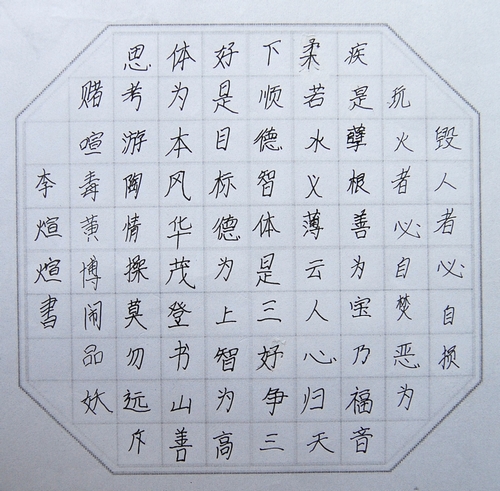 毁人者必自损
玩火者必自焚恶为
疾是孽根善为宝乃福音
柔若水义薄云人心归天
下顺德智体是三好争三
好是目标德为上智为高
体为本风华茂登书山善
思考游陶情操莫勿远
赌喧毒黄博闹品妖
李煊煊書